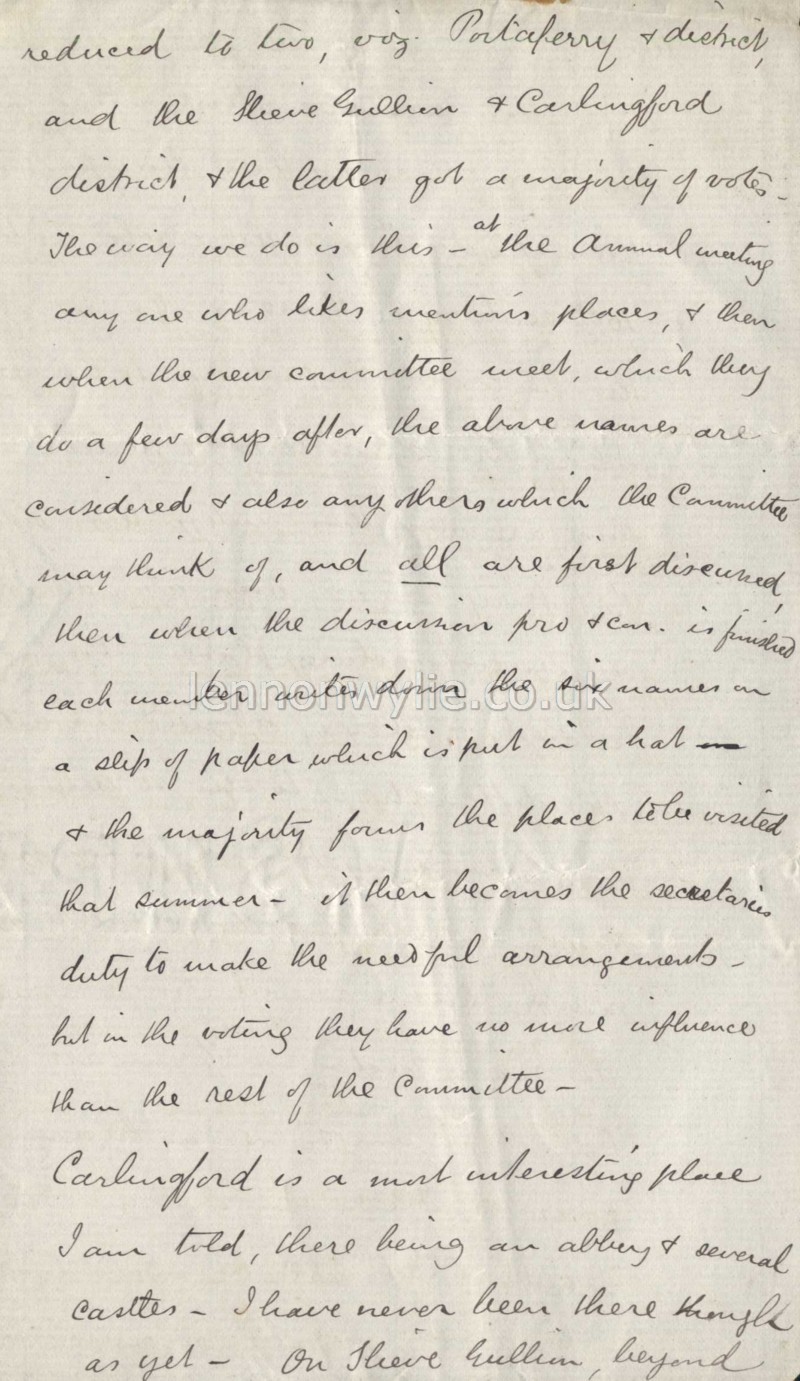 reduced to two, viz. Portaferry & district,
and the Slieve Gullion & Carlingford
district, & the latter got a majority of votes -
The way we do is this - at the Annual meeting
any one who likes mentions places, & then
when the new committee meet, which they
do a few days after, the above names are
considered & also any others which the Committee
may think of, and all are first discussed,
then when the discussion pro & con. is finished
each member writes down the six names on
lennonwylie.co.uk
a slip of paper which is put in a hat —
& the majority forms the places to be visited
that summer - it then becomes the secretaries
duty to make the needful arrangements -
but in the voting they have no more influence
than the rest of the Committee -
Carlingford is a most interesting place
I am told, there being an abbey & several
castles - I have never been there though
as yet - On Slieve Gullion, beyond